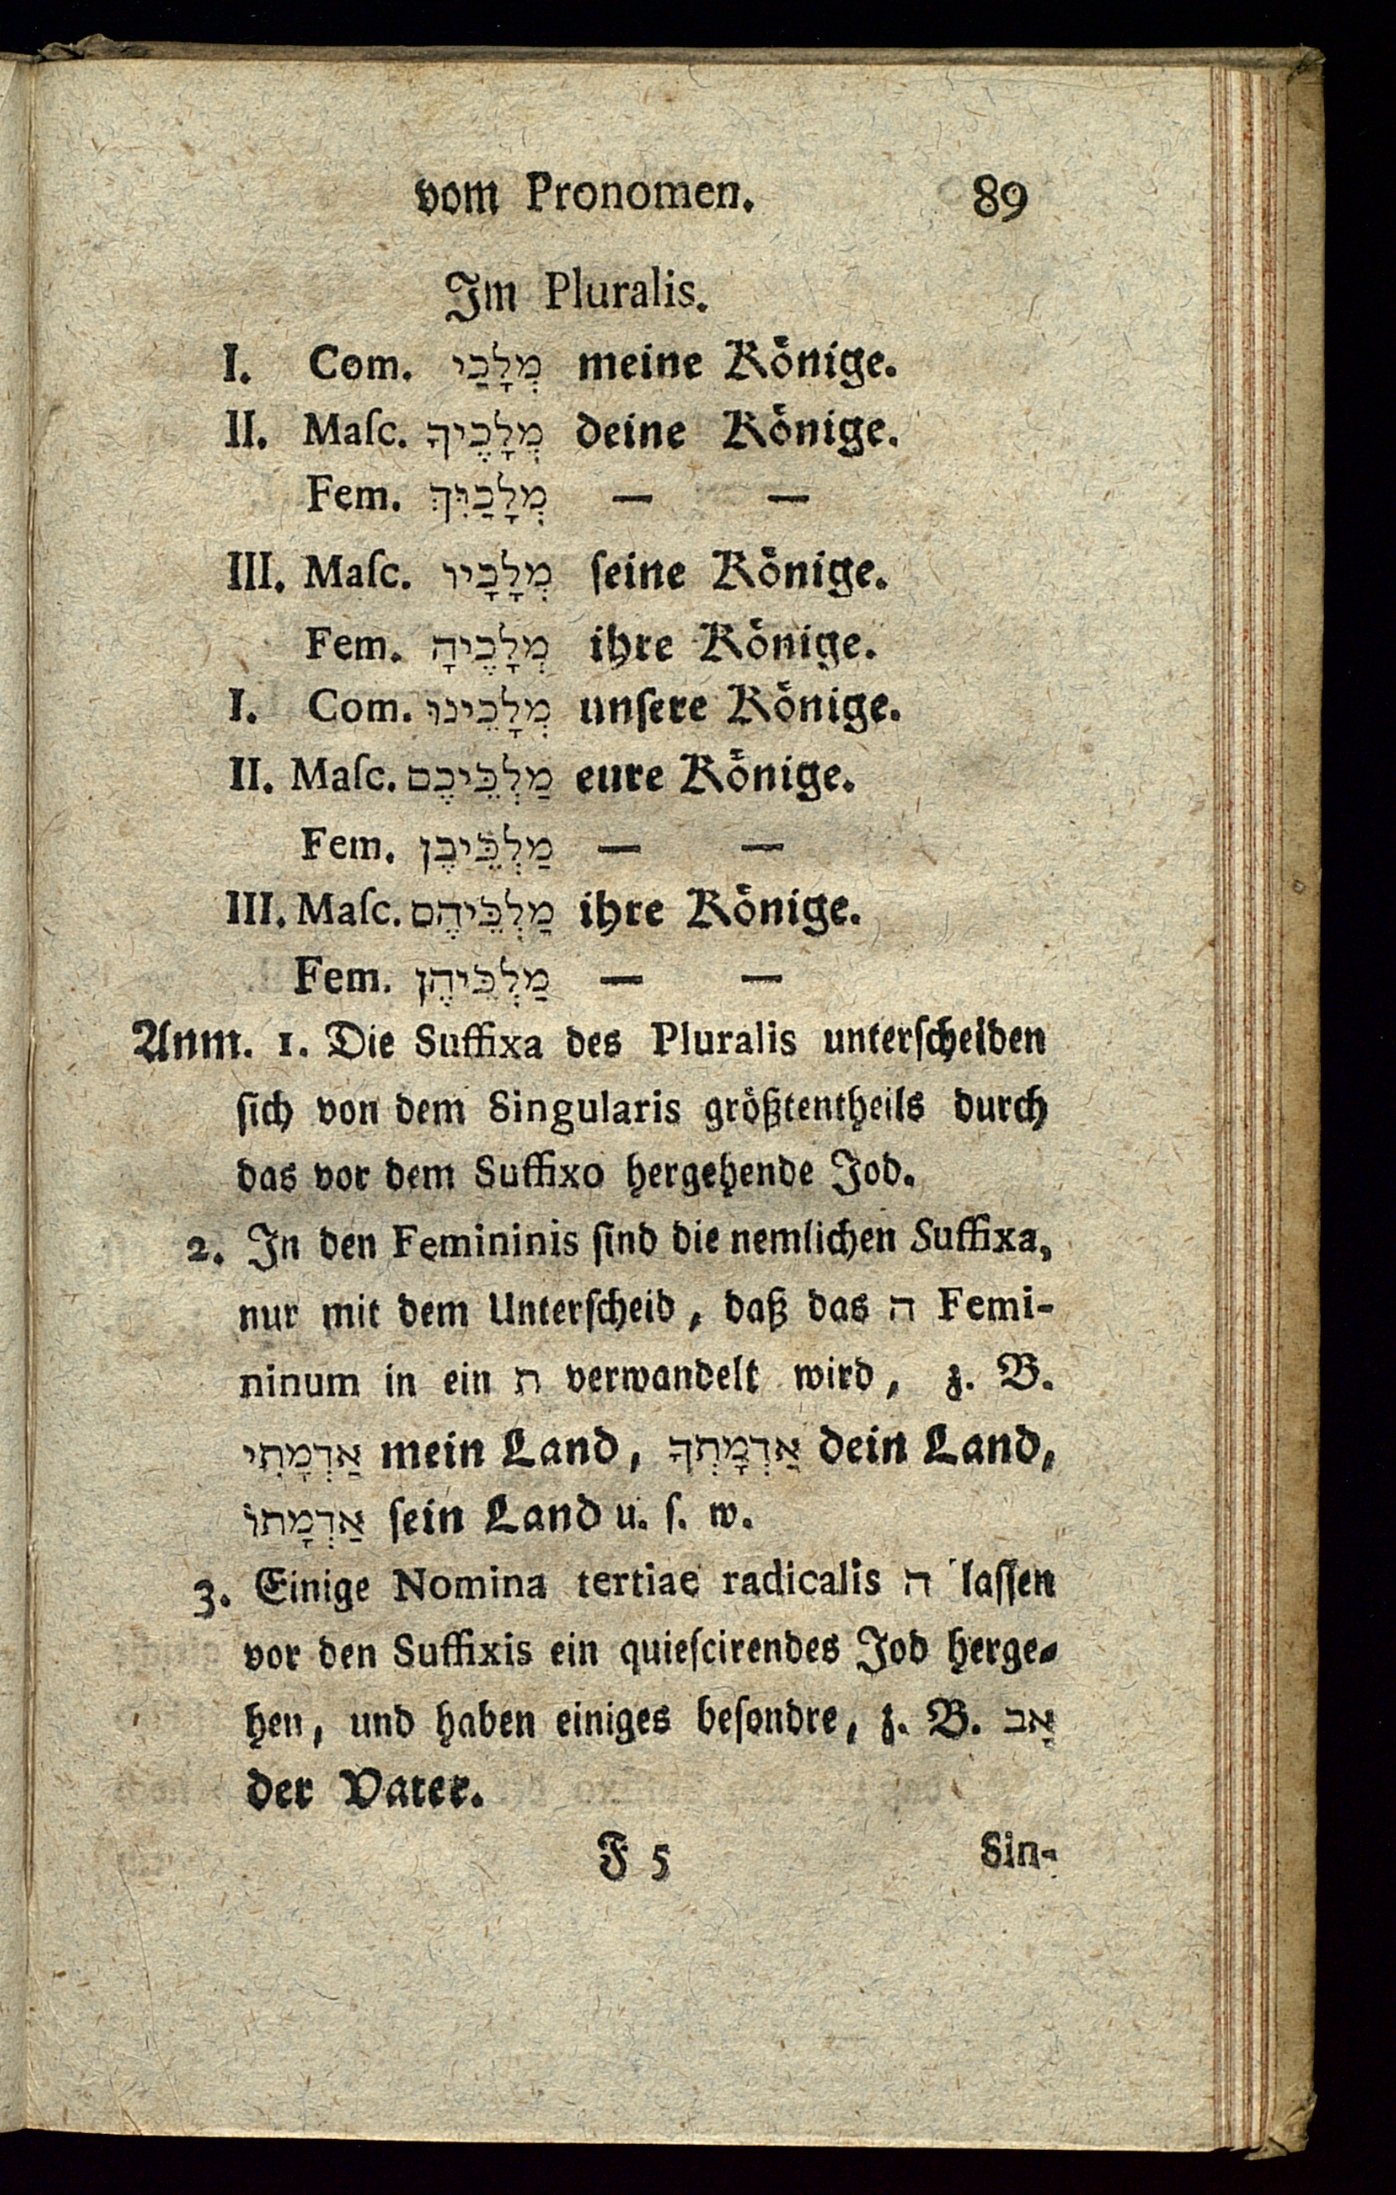 vom Pronomen. 89
Im Pluralis.
I. Com. מְלָכַי meine Könige.
II. Maſc. מְלָכֶיךָ deine Könige.
Fem. מְלָכַיִךְ — —
III. Maſc. מְלָכָיו ſeine Könige.
Fem. מְלָכֶיהָ ihre Könige.
I. Com. מְלָכֵינוּ unſere Könige.
II. Maſc. מַלְכֵּיכֶם eure Könige.
Fem. מַלְכֵּיכֶן — —
III. Maſc. מַלְכֵּיהֶם ihre Könige.
Fem. מַלְכֵּיהֶן — —
Anm. 1. Die Suffixa des Pluralis unterſcheiden
ſich von dem Singularis größtentheils durch
das vor dem Suffixo hergehende Jod.
2. In den Femininis ſind die nemlichen Suffixa,
nur mit dem Unterſcheid, daß das ה Femi-
ninum in ein ת verwandelt wird, z. B.
אַדְמָתִי mein Land, אַדְמָתְךָ dein Land,
אַדְמָתוֹ ſein Land u. ſ. w.
3. Einige Nomina tertiae radicalis ה laſſen
vor den Suffixis ein quieſcirendes Jod herge-
hen, und haben einiges beſondre, z. B. אָב
der Vater.
F 5 Sin-